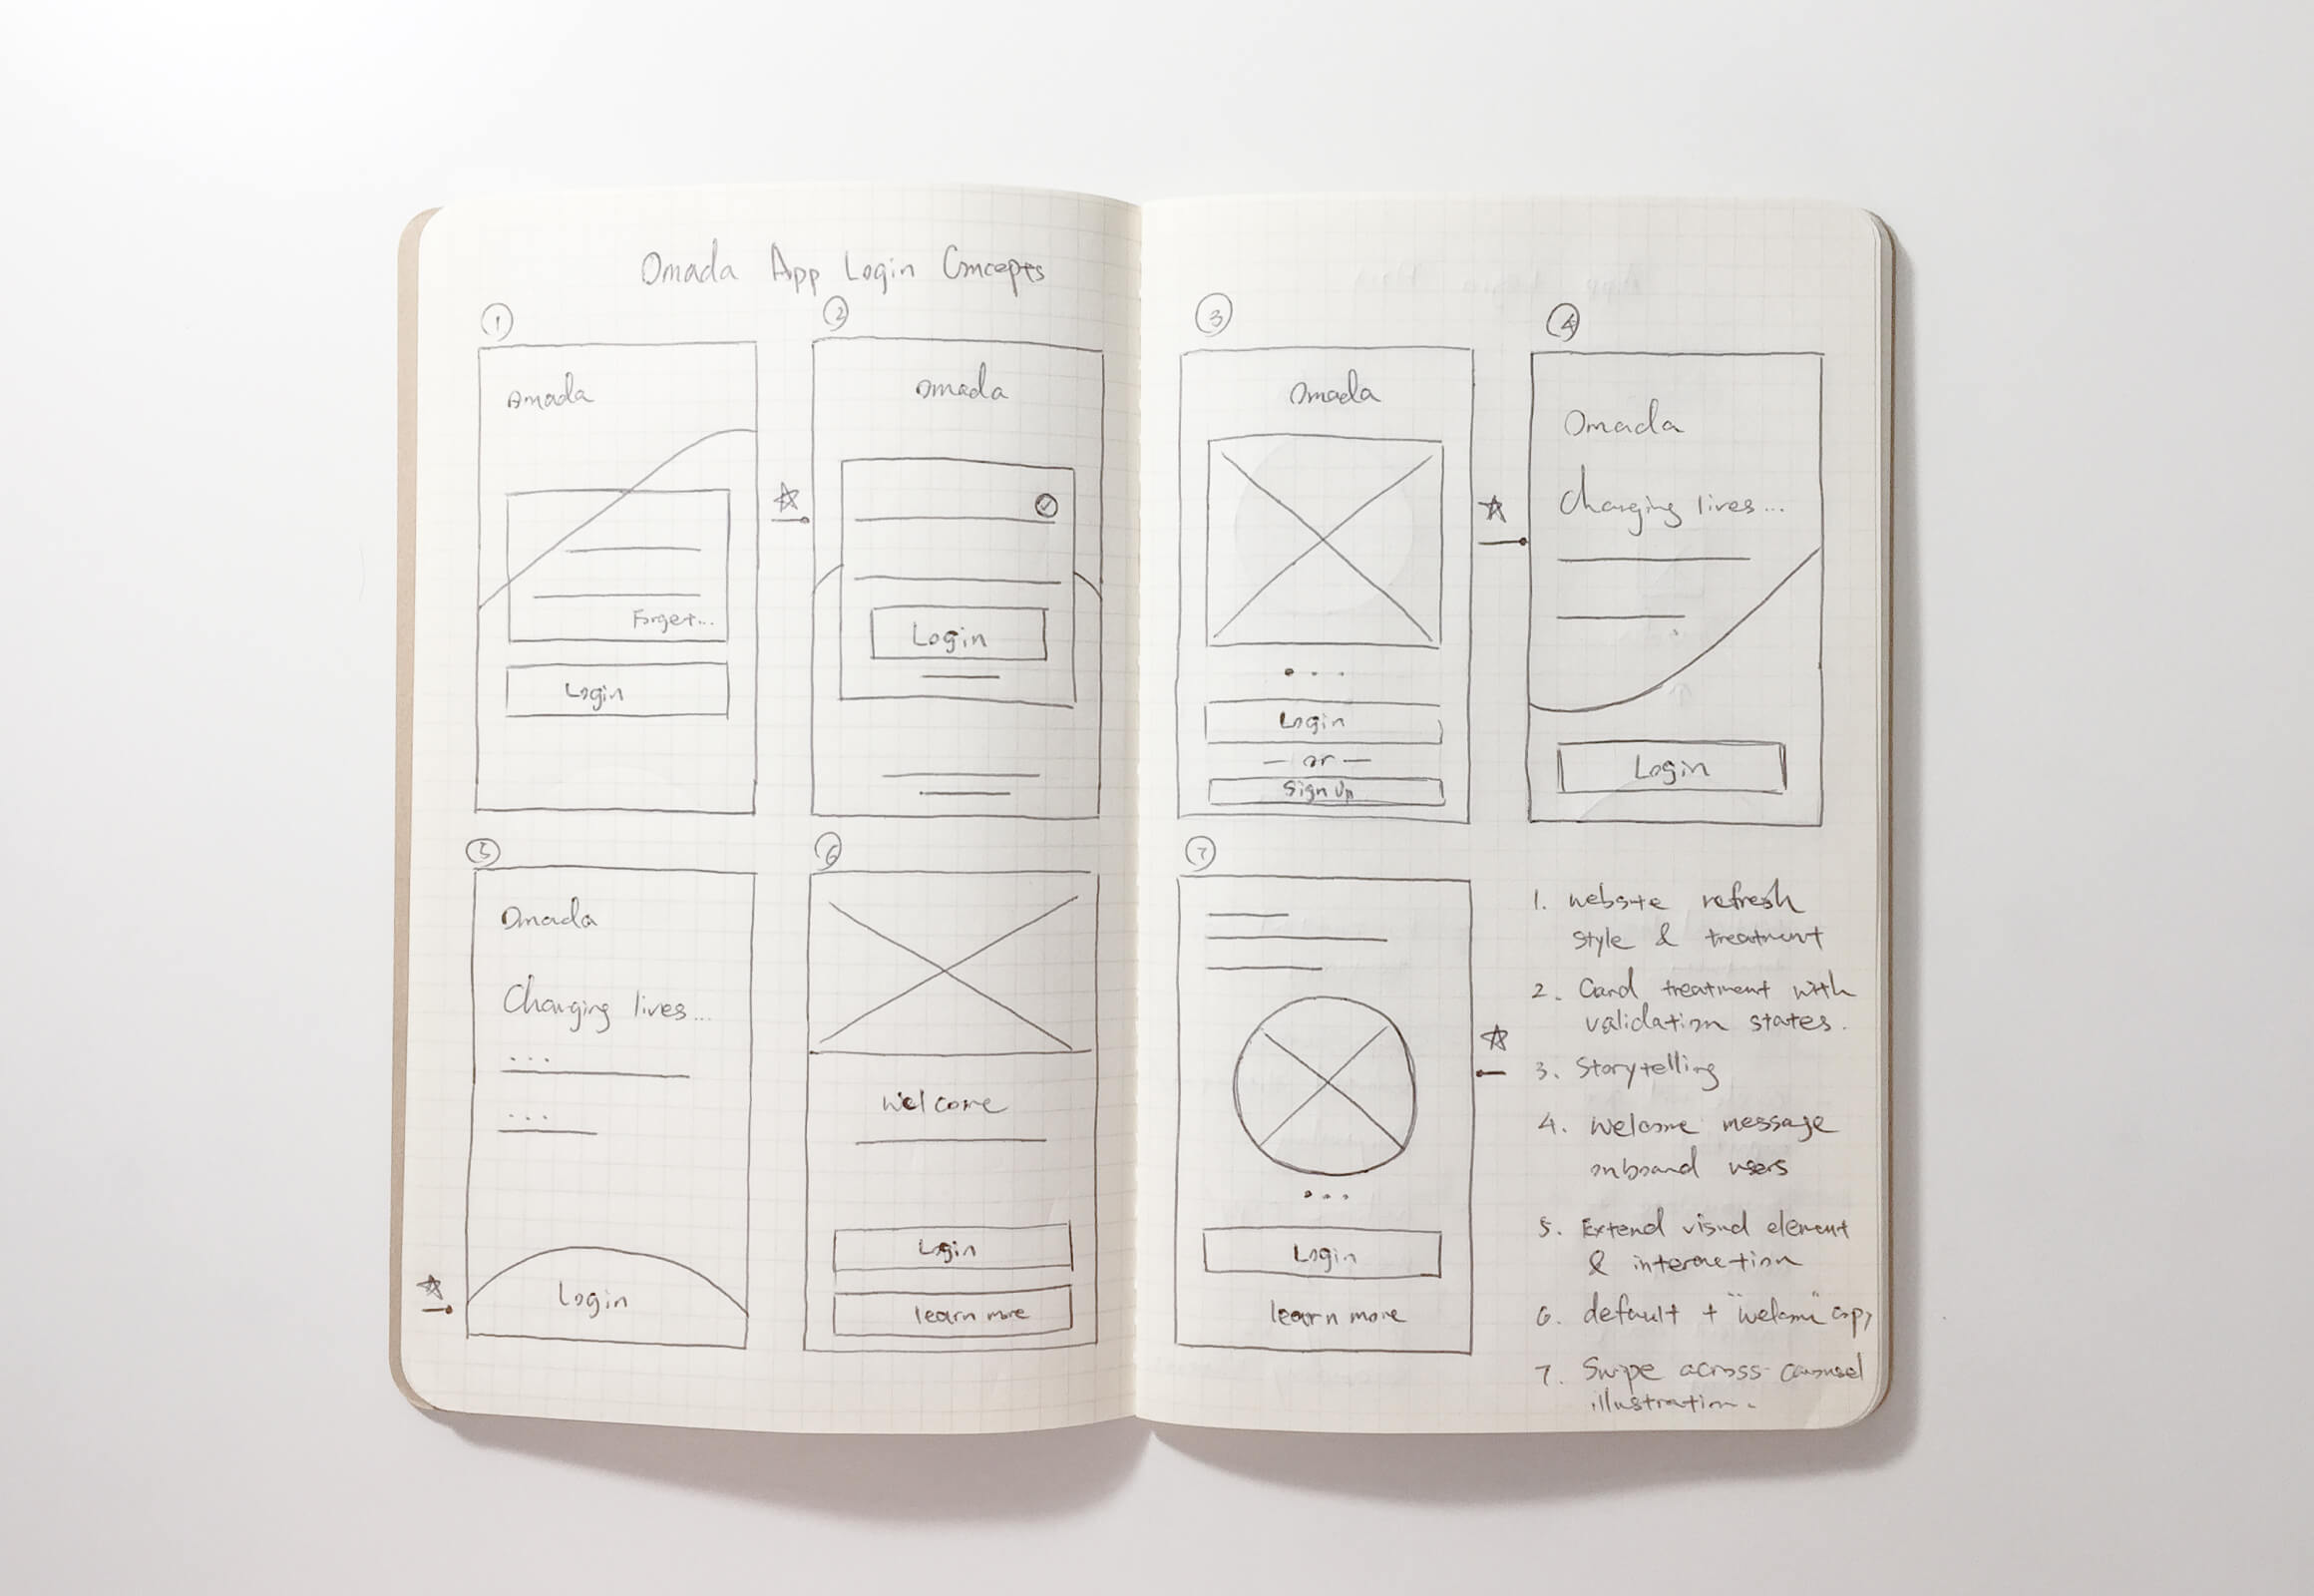 Omada App Login Concepts
1
Omada
Forget...
Login
2
Omada
Login
3
Omada
Login
— or —
Sign Up
4
Omada
Changing lives...
Login
5
Omada
Changing lives...
...
...
Login
6
Welcome
Login
learn more
7
Login
learn more
1. website refresh
style & treatment
2. Card treatment with
validation states.
3. Storytelling
4. Welcome message
onboard users
5. Extend visual element
& interaction
6. default + "welcome" copy
7. Swipe across carousel
illustration.